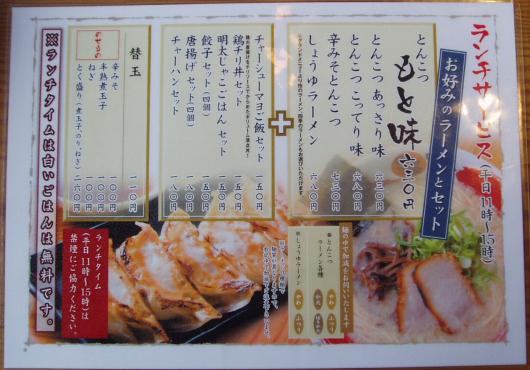 ランチサービス(平日11時〜15時)
お好みのラーメンとセット
とんこつ
もと味 六三〇円
とんこつ あっさり味 六三〇円
とんこつ こってり味 六八〇円
辛みそとんこつ 七三〇円
しょうゆラーメン 六八〇円
+
チャーシューマヨご飯セット 一五〇円
鶏チリ丼セット 一五〇円
明太じゃこごはん セット 一五〇円
餃子セット(四個) 一五〇円
唐揚げセット(四個) 一八〇円
チャーハンセット 一八〇円
替玉 一一〇円
のせもの
辛みそ 一〇〇円
半熟煮玉子 一〇〇円
ねぎ 一〇〇円
とく盛り(煮玉子、のり、ねぎ) 一六〇円
※ランチタイムは白いごはんは無料です。
麺のゆで加減をお伺いいたします
※とんこつ
ラーメン各種
かた
やわ
ふつう
※しょうゆラーメン
やわ
ふつう
ランチタイム
(平日11時〜15時)は
禁煙にご協力ください。